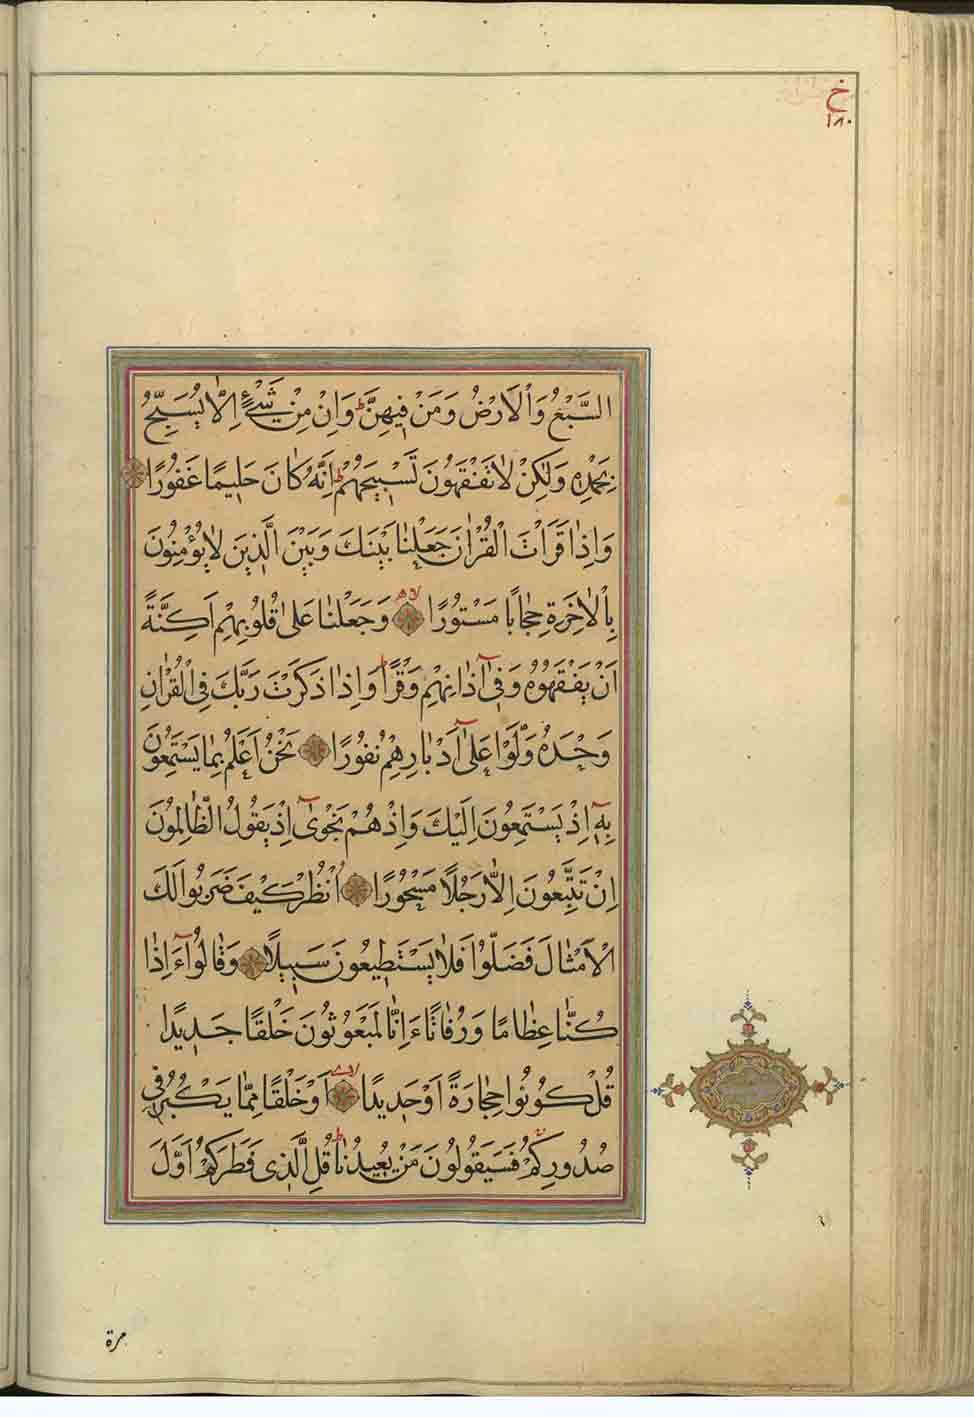 خ
١٨٠
السَّبْعُ وَالْاَرْضُ وَمَنْ فِيهِنَّ ط وَاِنْ مِنْ شَيْءٍ اِلّٰا يُسَبِّحُ
بِحَمْدِهِ وَلٰكِنْ لٰا تَفْقَهُونَ تَسْبِيحَهُمْ ط اِنَّهُ كٰانَ حَلِيمًا غَفُورًا
وَاِذٰا قَرَاْتَ الْقُرْاٰنَ جَعَلْنٰا بَيْنَكَ وَبَيْنَ الَّذِينَ لٰا يُؤْمِنُونَ
بِالْاٰخِرَةِ حِجٰابًا مَسْتُورًا وَجَعَلْنٰا عَلىٰ قُلُوبِهِمْ اَكِنَّةً
اَنْ يَفْقَهُوهُ وَفِيٓ اٰذٰانِهِمْ وَقْرًا ط وَاِذٰا ذَكَرْتَ رَبَّكَ فِي الْقُرْاٰنِ
وَحْدَهُ وَلَّوْا عَلىٰٓ اَدْبٰارِهِمْ نُفُورًا نَحْنُ اَعْلَمُ بِمٰا يَسْتَمِعُونَ
بِهِٓ اِذْ يَسْتَمِعُونَ اِلَيْكَ وَاِذْ هُمْ نَجْوىٰٓ اِذْ يَقُولُ الظّٰالِمُونَ
اِنْ تَتَّبِعُونَ اِلّٰا رَجُلًا مَسْحُورًا اُنْظُرْ كَيْفَ ضَرَبُوا لَكَ
الْاَمْثٰالَ فَضَلُّوا فَلٰا يَسْتَطِيعُونَ سَبِيلًا وَقٰالُوٓا ءَاِذٰا
كُنّٰا عِظٰامًا وَرُفٰاتًا ءَاِنّٰا لَمَبْعُوثُونَ خَلْقًا جَدِيدًا
قُلْ كُونُوا حِجٰارَةً اَوْ حَدِيدًا اَوْ خَلْقًا مِمّٰا يَكْبُرُ فِي
صُدُورِكُمْ فَسَيَقُولُونَ مَنْ يُعِيدُنٰا ط قُلِ الَّذِي فَطَرَكُمْ اَوَّلَ
مرة